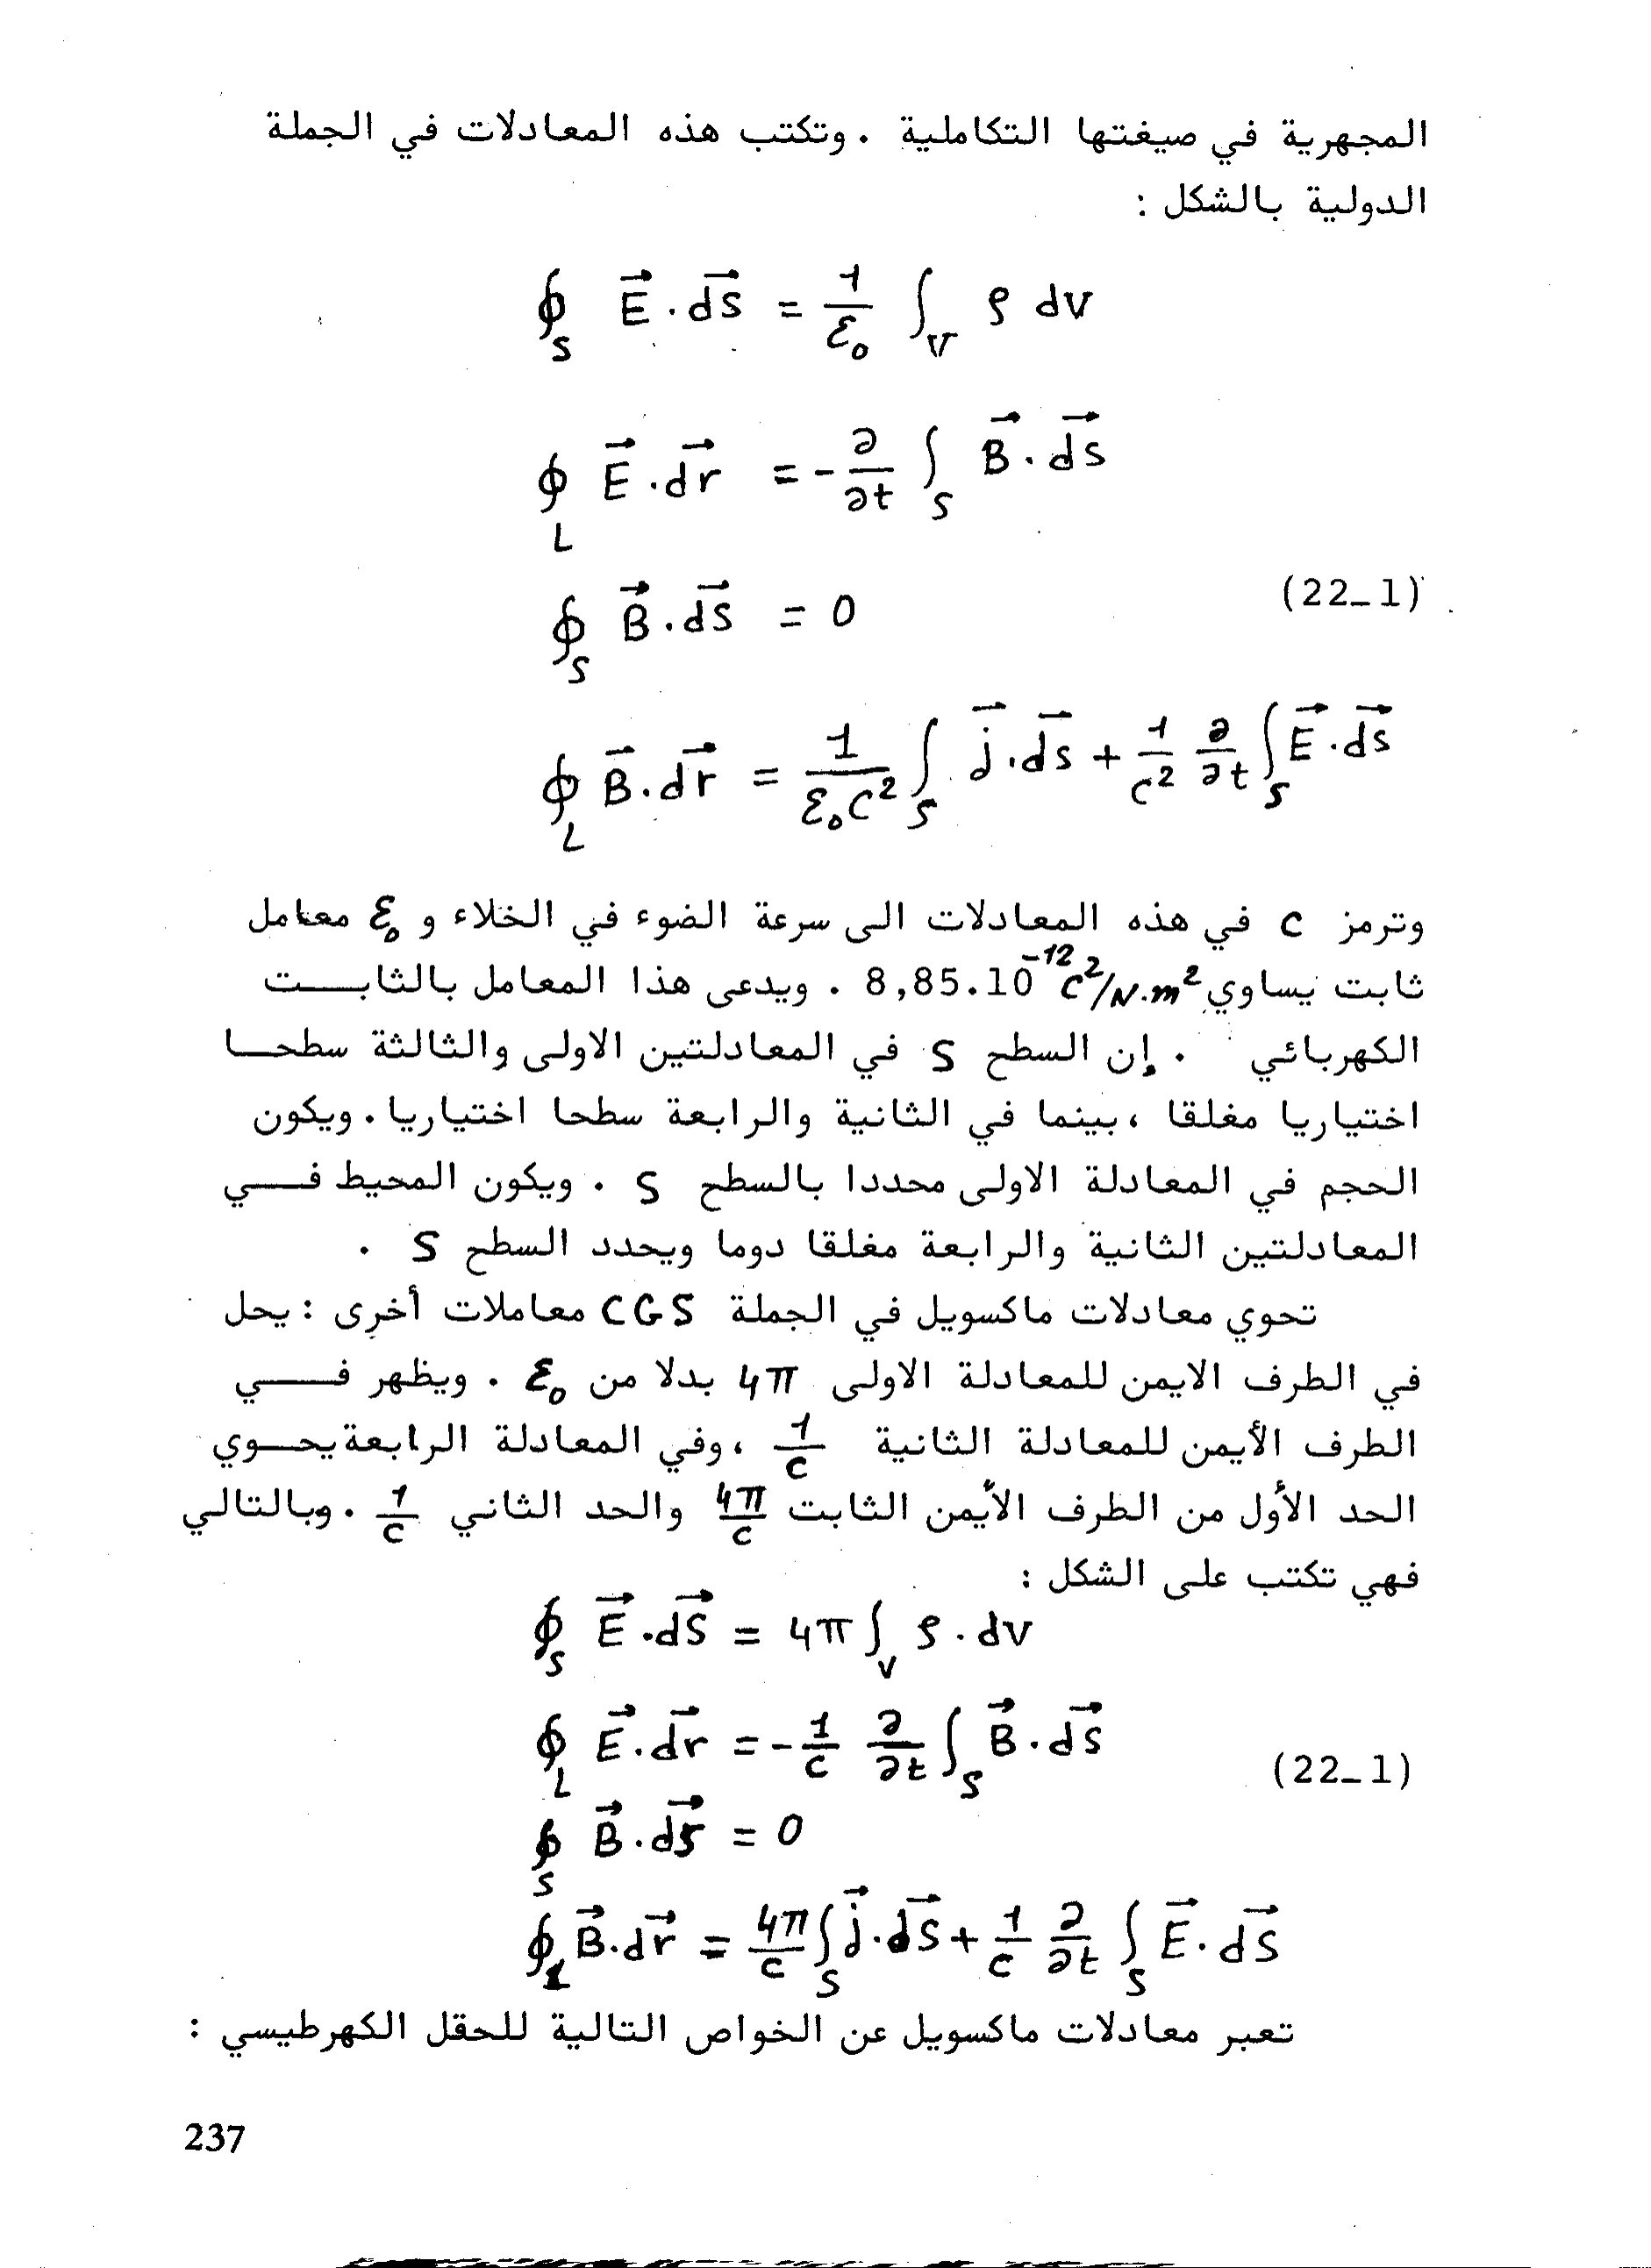 المجهرية في صيغتها التكاملية . وتكتب هذه المعادلات في الجملة
الدولية بالشكل :
∮_S E⃗ . ds⃗ = 1/ε₀ ∫_V ρ dv
∮_L E⃗ . dr⃗ = - ∂/∂t ∫_S B⃗ . ds⃗
∮_S B⃗ . ds⃗ = 0 (22_1)
∮_L B⃗ . dr⃗ = 1/ε₀c² ∫_S j⃗ . ds⃗ + 1/c² ∂/∂t ∫_S E⃗ . ds⃗
وترمز c في هذه المعادلات الى سرعة الضوء في الخلاء و ε₀ معامل
ثابت يساوي 8,85.10⁻¹² c²/N.m² . ويدعى هذا المعامل بالثابـــت
الكهربائي . إن السطح S في المعادلتين الاولى والثالثة سطحـا
اختياريا مغلقا ، بينما في الثانية والرابعة سطحا اختياريا . ويكون
الحجم في المعادلة الاولى محددا بالسطح S . ويكون المحيط فـــي
المعادلتين الثانية والرابعة مغلقا دوما ويحدد السطح S .
تحوي معادلات ماكسويل في الجملة CGS معاملات أخرى : يحل
في الطرف الايمن للمعادلة الاولى 4π بدلا من ε₀ . ويظهر فـــي
الطرف الأيمن للمعادلة الثانية 1/c ، وفي المعادلة الرابعة يحـوي
الحد الأول من الطرف الأيمن الثابت 4π/c والحد الثاني 1/c . وبالتالي
فهي تكتب على الشكل :
∮_S E⃗ . dS⃗ = 4π ∫_V ρ . dv
∮_L E⃗ . dr⃗ = - 1/c ∂/∂t ∫_S B⃗ . ds⃗ (22_1)
∮_S B⃗ . ds⃗ = 0
∮_L B⃗ . dr⃗ = 4π/c ∫_S j⃗ . ds⃗ + 1/c ∂/∂t ∫_S E⃗ . ds⃗
تعبر معادلات ماكسويل عن الخواص التالية للحقل الكهرطيسي :
237